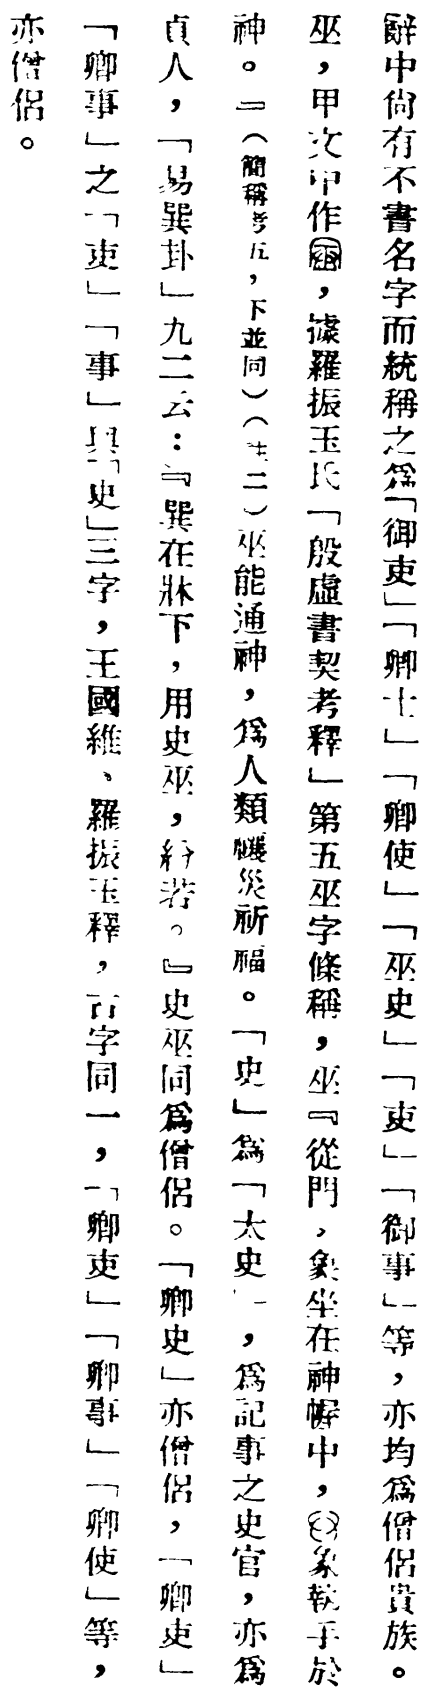 辭中尙有不書名字而統稱之爲「御吏」「卿士」「卿使」「巫史」「吏」「御事」等，亦均爲僧侶貴族。
巫，甲文中作，據羅振玉氏「殷虛書契考釋」第五巫字條稱，巫『從門，象坐在神幄中，象執手於
神。』（簡稱考五，下並同）（註二）巫能通神，爲人類禨災祈福。「史」爲「太史」，爲記事之史官，亦爲
貞人，「易巽卦」九二云：『巽在牀下，用史巫，紛若。』史巫同爲僧侶。「卿史」亦僧侶，「卿吏」
「卿事」之「吏」「事」與「史」三字，王國維、羅振玉釋，古字同一，「卿吏」「卿事」「卿使」等，
亦僧侶。